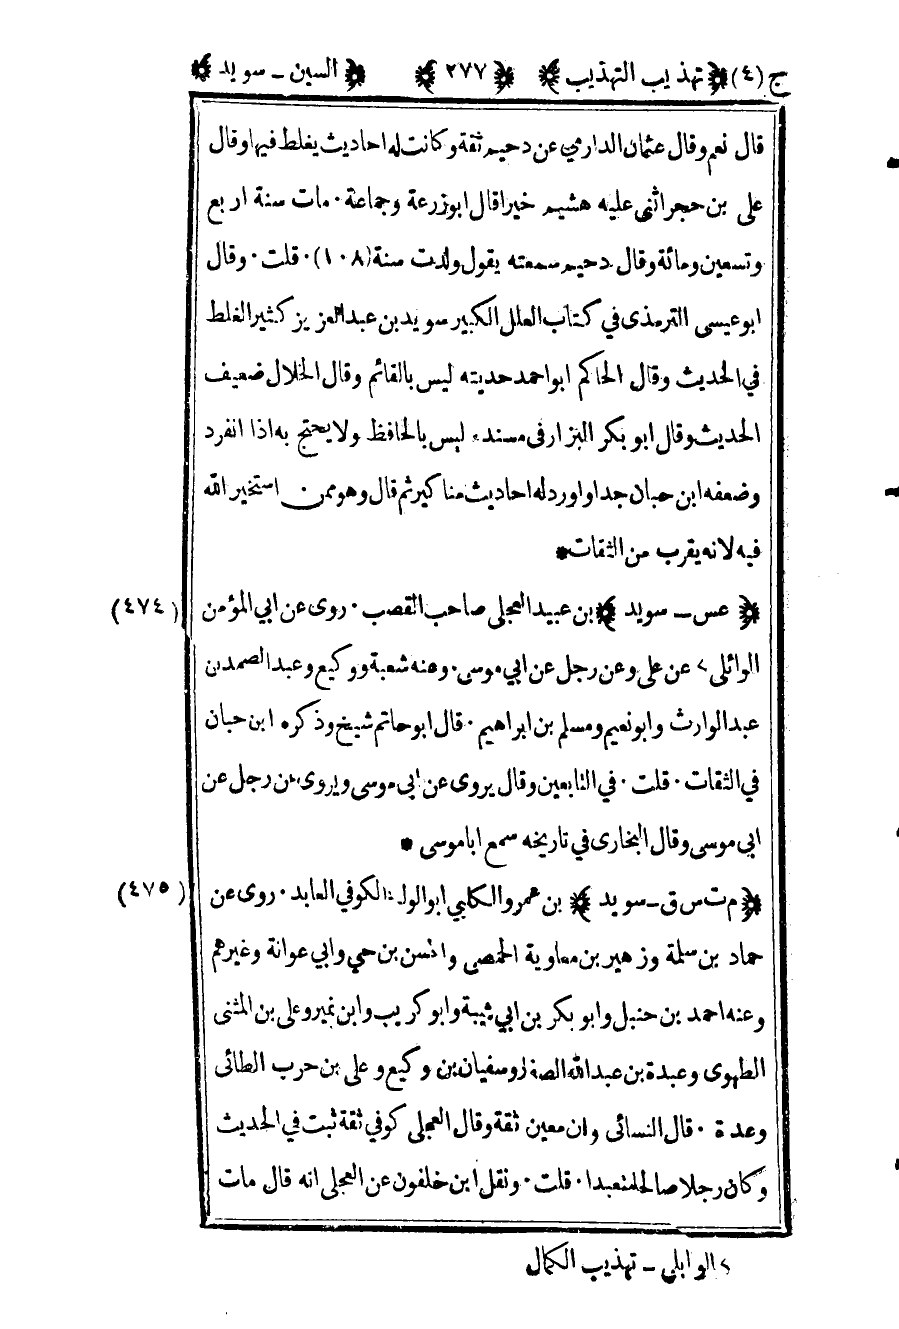 ج (٤) ﴿ تهذيب التهذيب ﴾ ﴿ ٢٧٧ ﴾ ﴿ السين - سويد ﴾
قال نعم وقال عثمان الدارمي عن دحيم ثقة وكانت له احاديث يغلط فيها وقال
على بن حجر اثنى عليه هشيم خيرا قال ابو زرعة وجماعة · مات سنة اربع
وتسعين ومائة وقال دحيم سمعته يقول ولدت سنة (١٠٨) · قلت · وقال
ابو عيسى الترمذى في كتاب العلل الكبير سويد بن عبد العزيز كثير الغلط
في الحديث وقال الحاكم ابو احمد حديثه ليس بالقائم وقال الخلال ضعيف
الحديث وقال ابو بكر البزار فى مسنده ليس بالحافظ ولا يحتج به اذا انفرد
وضعفه ابن حبان جدا و اورد له احاديث مناكير ثم قال وهو ممن استخير الله
فيه لانه يقرب من الثقات *
﴿ عس - سويد ﴾ بن عبيد العجلى صاحب القصب · روى عن ابي المؤمن (٤٧٤)
الوائلى ٢ عن على وعن رجل عن ابي موسى · وعنه شعبة ووكيع وعبد الصمد بن
عبد الوارث وابو نعيم ومسلم بن ابراهيم · قال ابو حاتم شيخ وذكره ابن حبان
في الثقات · قلت · في التابعين وقال يروى عن ابى موسى ويروى عن رجل عن
ابي موسى وقال البخارى في تاريخه سمع ابا موسى *
﴿ م ت س ق - سويد ﴾ بن عمرو الكلبي ابو الوليد الكوفي العابد · روى عن (٤٧٥)
حماد بن سلمة وزهير بن معاوية الحمصى والحسن بن حي وابي عوانة وغيرهم
وعنه احمد بن حنبل وابو بكر بن ابي شيبة وابو كريب وابن نمير وعلى بن المثنى
الطهوى وعبدة بن عبد الله الصفار وسفيان بن وكيع وعلى بن حرب الطائى
وعدة · قال النسائى وابن معين ثقة وقال العجلى كوفي ثقة ثبت في الحديث
وكان رجلا صالحا متعبدا · قلت · ونقل ابن خلفون عن العجلى انه قال مات
٢ الوابلى - تهذيب الكمال